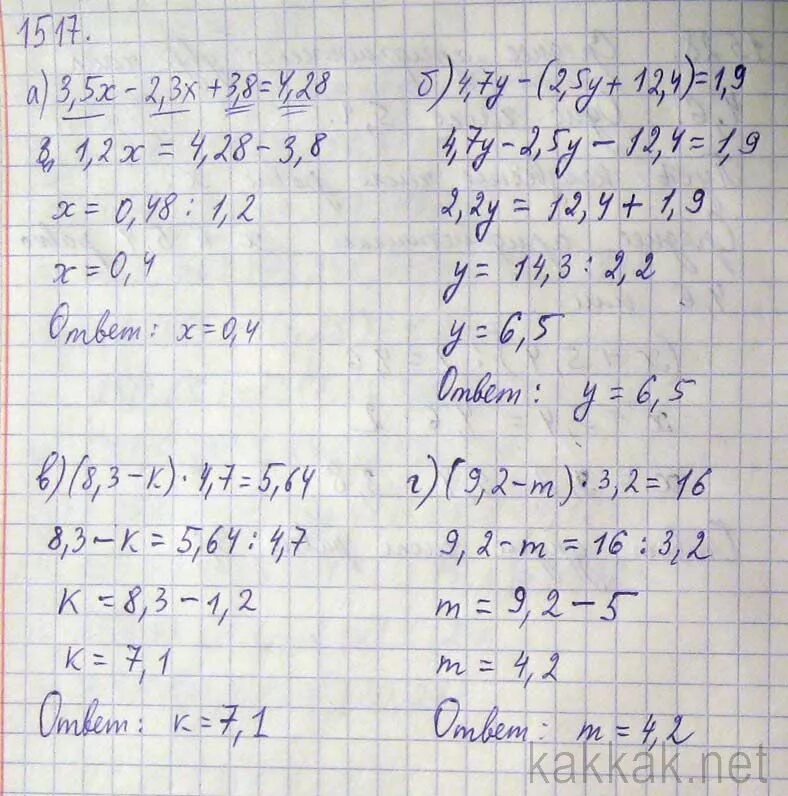 1517.
а) 3,5x - 2,3x + 3,8 = 4,28
1,2x = 4,28 - 3,8
x = 0,48 : 1,2
x = 0,4
Ответ: x = 0,4
б) 4,7y - (2,5y + 12,4) = 1,9
4,7y - 2,5y - 12,4 = 1,9
2,2y = 12,4 + 1,9
y = 14,3 : 2,2
y = 6,5
Ответ: y = 6,5
в) (8,3 - к) · 4,7 = 5,64
8,3 - к = 5,64 : 4,7
к = 8,3 - 1,2
к = 7,1
Ответ: к = 7,1
г) (9,2 - m) · 3,2 = 16
9,2 - m = 16 : 3,2
m = 9,2 - 5
m = 4,2
Ответ: m = 4,2
kakkak.net